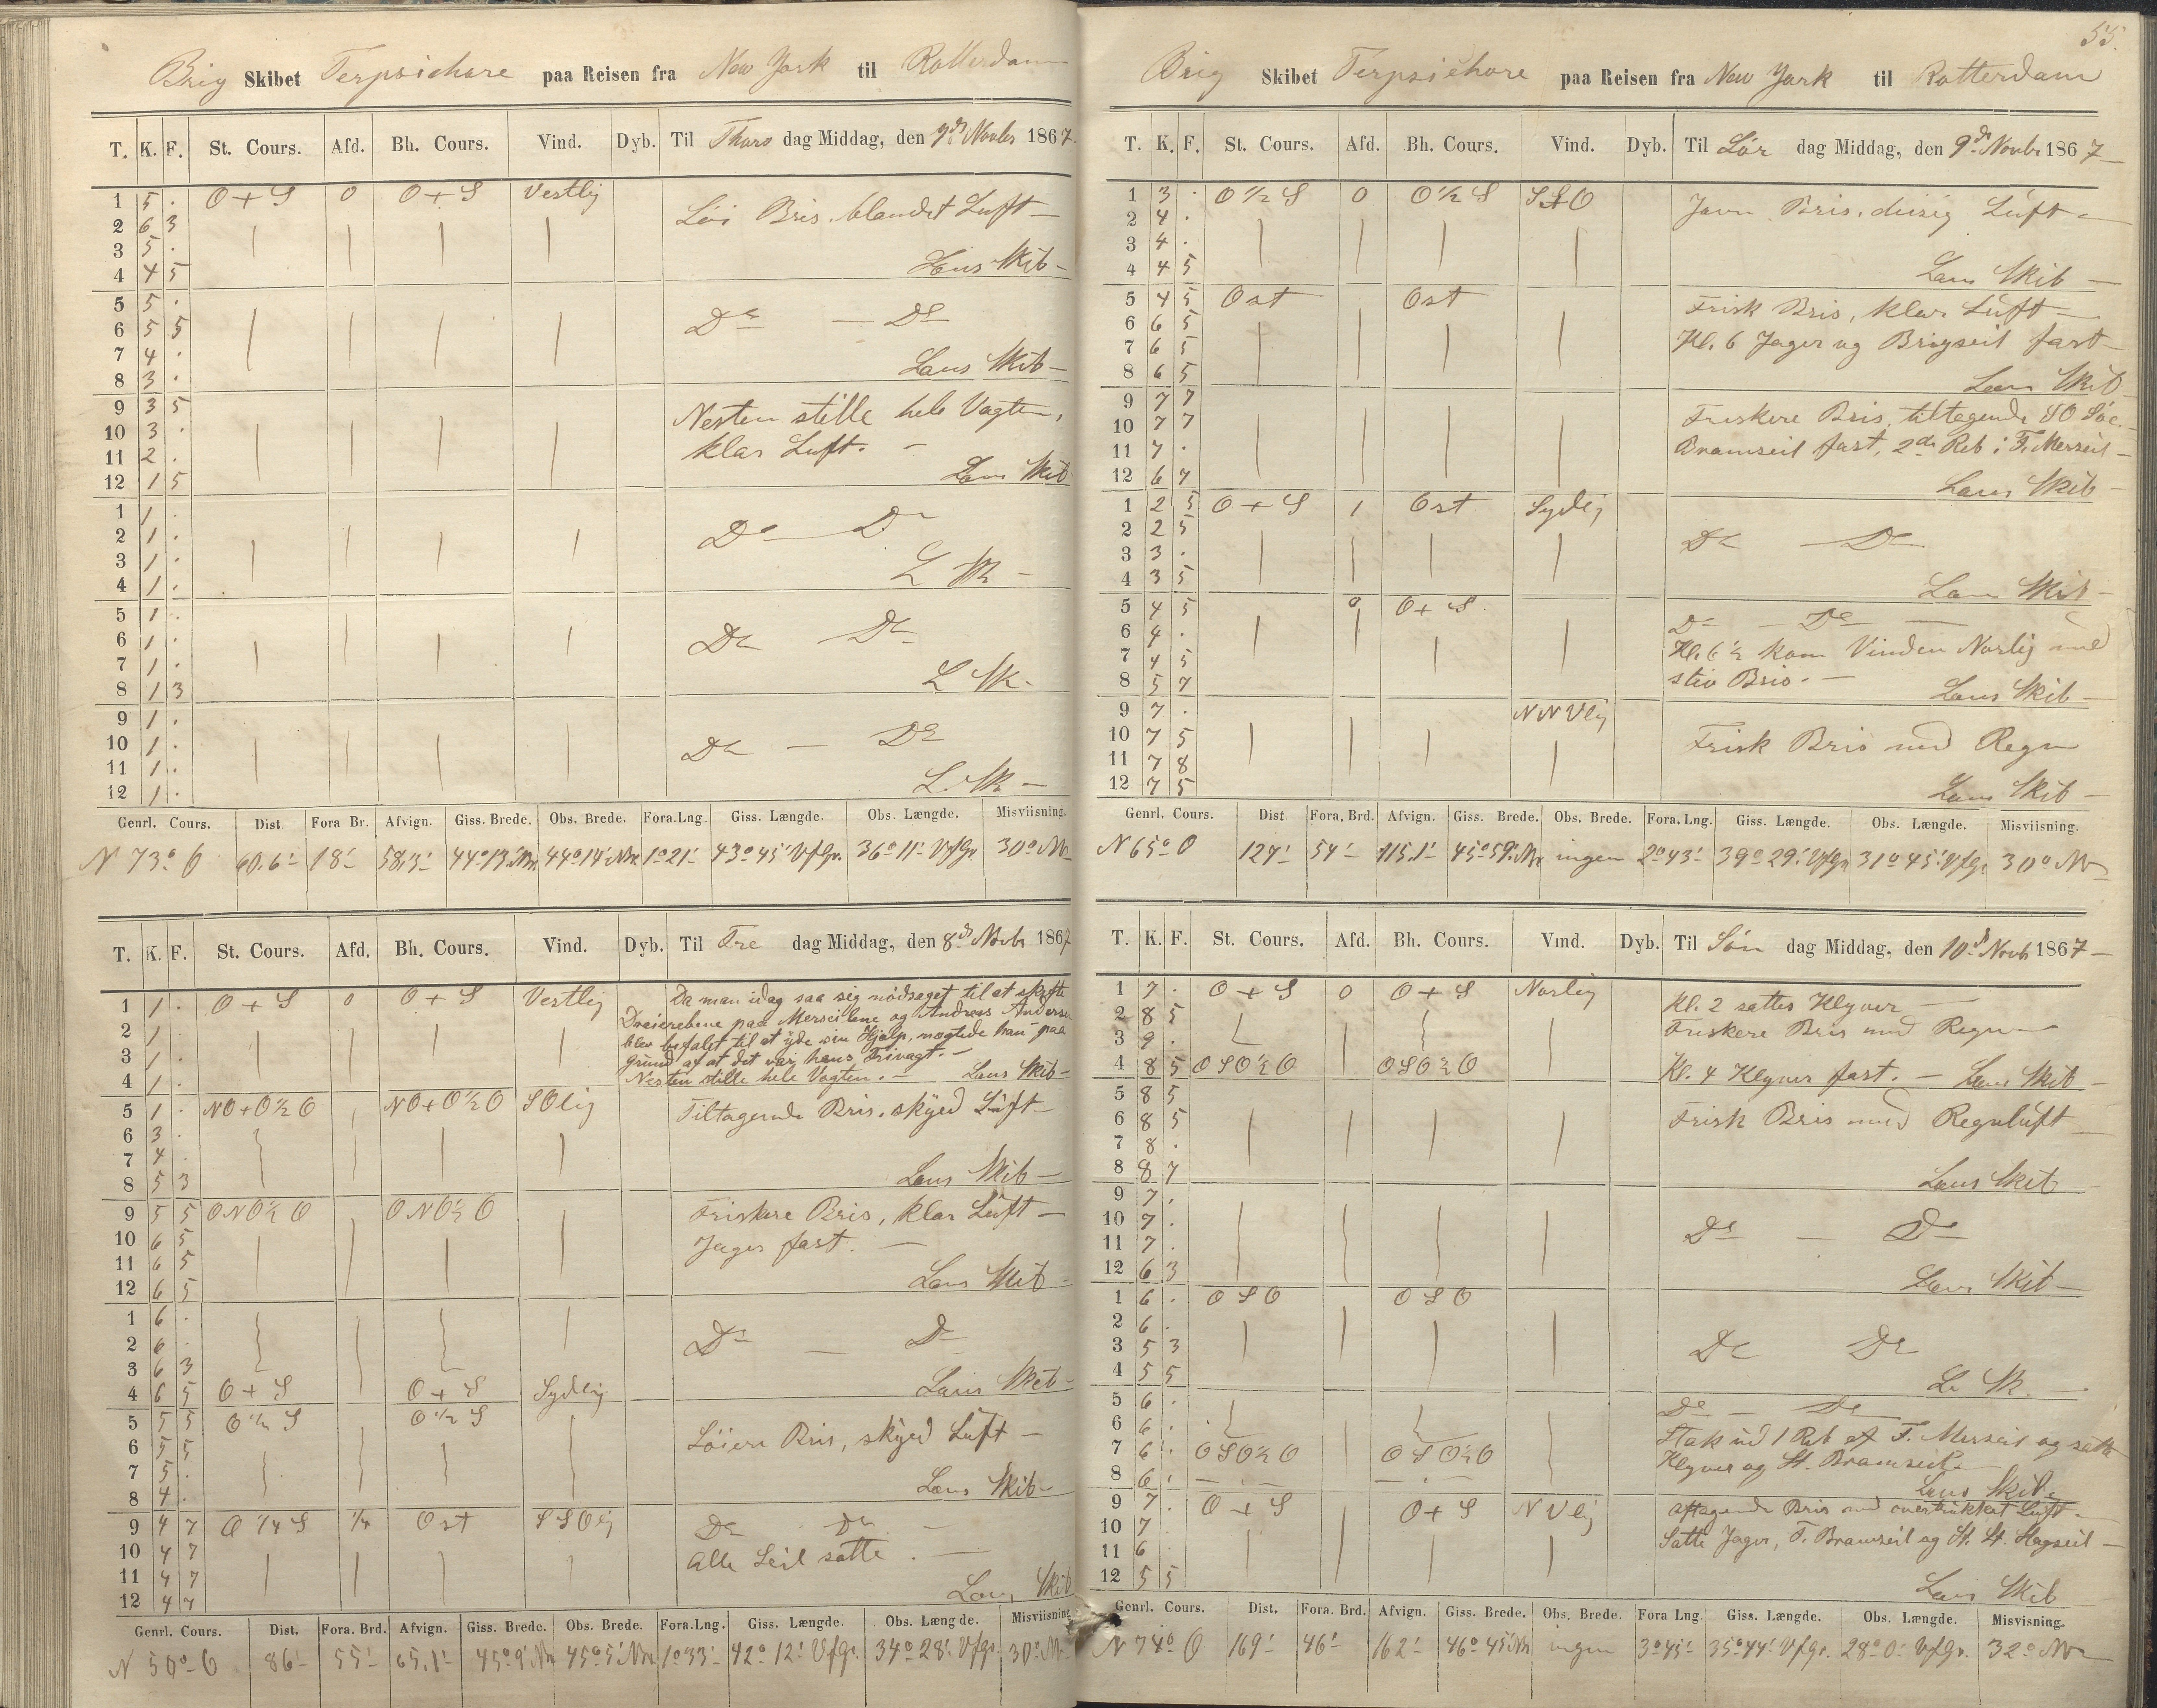 Brig Skibet Terpsichore paa Reisen fra New York til Rotterdam
T. K. F. St. Cours. Afd. Bh. Cours. Vind. Dyb. Til Thors dag Middag, den 7de Novbr 1867
1 5 . O + S 0 O + S Vestlig
2 6 3 Løi Bris, blandet Luft —
3 5 .
4 4 5 Læns Skib —
5 5 .
6 5 5 Do — Do
7 4 .
8 3 . Læns Skib —
9 3 5 Nesten stille hele Vagten,
10 3 .
11 2 . klar Luft. —
12 1 5 Læns Skib
1 1 .
2 1 . Do — Do
3 1 .
4 1 . L Sk —
5 1 .
6 1 . Do Do
7 1 .
8 1 3 L Sk.
9 1 .
10 1 . Do — Do
11 1 .
12 1 . L. Sk —
Genrl. Cours. Dist. Fora Br. Afvign. Giss. Brede. Obs. Brede. Fora. Lng. Giss. Længde. Obs. Længde. Misviisning.
N 73° O 60.6' 18' 58.3' 44° 13' Nr 44° 14' Nr 1° 21' 43° 45' V f Gr. 36° 11' V f Gr 30° NV
T. K. F. St. Cours. Afd. Bh. Cours. Vind. Dyb. Til Fre dag Middag, den 8de Novbr 1867
1 1 . O + S 0 O + S Vestlig Da man idag saa sig nødsaget til at skifte
2 1 Dreierebene paa Merseilene og Andreas Andersen
blev befalet til at yde sin Hjælp, nægtede han paa
3 1 . grund af at det var hans Frivagt. —
4 1 . Nesten stille hele Vagten. — Læns Skib —
5 1 . NO + O ½ O NO + O ½ O SOlig Tiltagende Bris, skyed Luft —
6 3 .
7 4 .
8 5 3 Læns Skib —
9 5 5 ONO ½ O ONO ½ O Friskere Bris, klar Luft —
10 6 5 Jager fast. —
11 6 5
12 6 5 Læns Skib —
1 6 .
2 6 . Do — Do
3 6 3
4 6 5 O + S O + S Sydlig Læns Skib —
5 5 5 O ½ S O ½ S
6 5 5 Løiere Bris, skyed Luft —
7 5 .
8 4 . Læns Skib —
9 4 7 O ¼ S ¼ Ost SSOlig Do Do —
10 4 7 Alle Seil satte. —
11 4 7
12 4 7 Læns Skib
Genrl. Cours. Dist. Fora. Brd. Afvign. Giss. Brede. Obs. Brede. Fora. Lng. Giss. Længde. Obs. Længde. Misviisning
N 50° O 86' 55' 65.1' 45° 9' Nr 45° 5' Nr 1° 33' 42° 12' V f Gr. 34° 28' V f Gr. 30° NV
55.
Brig Skibet Terpsichore paa Reisen fra New York til Rotterdam
T. K. F. St. Cours. Afd. Bh. Cours. Vind. Dyb. Til Lør dag Middag, den 9de Novbr 1867 —
1 3 . O ½ S 0 O ½ S SSO Javn Bris, diisig Luft —
2 4 .
3 4 .
4 4 5 Læns Skib —
5 4 5 Ost Ost Frisk Bris, klar Luft —
6 6 5 Kl. 6 Jager og Brigseil fast —
7 6 5
8 6 5 Læns Skib
9 7 7 Friskere Bris, tiltagende SO Søe. —
10 7 7
11 7 . Bramseil fast, 2de Reb i F. Merseil —
12 6 7 Læns Skib —
1 2 5 O + S 1 Ost Sydlig
2 2 5 Do — Do
3 3 .
4 3 5 Læns Skib —
5 4 5 0 O + S. Do — Do —
6 4 . Kl. 6 ½ kom Vinden Norlig med
7 4 5
8 5 7 stiv Bris. — Læns Skib —
9 7 . NNVlig
10 7 5 Frisk Bris med Regn
11 7 8
12 7 5 Læns Skib —
Genrl. Cours. Dist. Fora, Brd. Afvign. Giss. Brede. Obs. Brede. Fora. Lng. Giss. Længde. Obs. Længde. Misviisning.
N 65° O 127' 54' 115.1' 45° 59' Nr ingen 2° 43' 39° 29' V f Gr 31° 45' V f Gr 30° NV
T. K. F. St. Cours. Afd. Bh. Cours. Vind. Dyb. Til Søn dag Middag, den 10de Novb 1867 —
1 7 . O + S 0 O + S Norlig Kl. 2 sattes Klyver —
2 8 5 Friskere Bris med Regn —
3 9 .
4 8 5 OSO ½ O OSO ½ O Kl. 4 Klyver fast. — Læns Skib —
5 8 5
6 8 5 Frisk Bris med Regnluft —
7 8 .
8 8 7 Læns Skib
9 7 .
10 7 . Do — Do
11 7 .
12 6 3 Læns Skib —
1 6 . OSO OSO
2 6 .
3 5 3 Do Do
4 5 5 L. Sk. —
5 6 . Do — Do
6 6 . Stak ud 1 Reb af F. Merseil og satte
7 6 . OSO ½ O OSO ½ O Klyver og St. Bramseil —
8 6 . Læns Skib.
9 7 . O + S O + S NVlig Aftagende Bris med overtrukket Luft —
10 7 Satte Jager, F. Bramseil og St. St. Stagseil —
11 6
12 5 5 Læns Skib
Genrl. Cours. Dist. Fora. Brd. Afvign. Giss. Brede. Obs. Brede. Fora Lng. Giss. Længde. Obs. Længde. Misviisning.
N 74° O 169' 46' 162' 46° 45' Nr ingen 3° 45' 35° 44' V f Gr. 28° 0' V f Gr. 32° NV